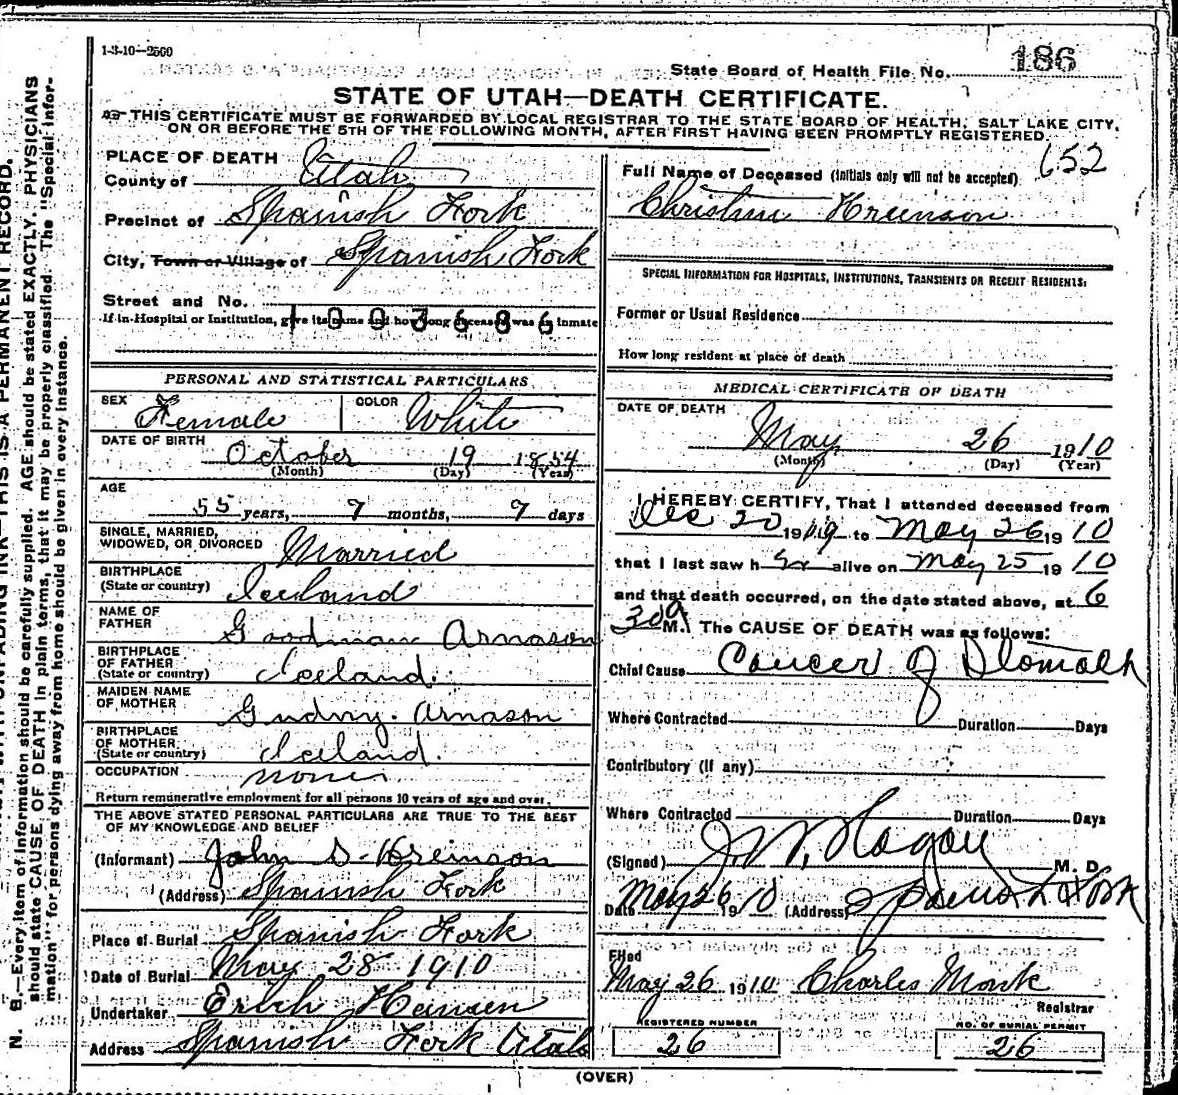 1-3-10—2500
State Board of Health File No. 186
STATE OF UTAH—DEATH CERTIFICATE.
THIS CERTIFICATE MUST BE FORWARDED BY LOCAL REGISTRAR TO THE STATE BOARD OF HEALTH, SALT LAKE CITY,
ON OR BEFORE THE 5TH OF THE FOLLOWING MONTH, AFTER FIRST HAVING BEEN PROMPTLY REGISTERED.
PLACE OF DEATH
County of Utah
Precinct of Spanish Fork
City, Town or Village of Spanish Fork
Street and No.
If in Hospital or Institution, give its name and how long deceased was inmate
1003686
PERSONAL AND STATISTICAL PARTICULARS
SEX Female COLOR White
DATE OF BIRTH
October 19 1854
(Month) (Day) (Year)
AGE
55 years, 7 months, 7 days
SINGLE, MARRIED,
WIDOWED, OR DIVORCED Married
BIRTHPLACE
(State or country) Iceland
NAME OF
FATHER Goodman Arnason
BIRTHPLACE
OF FATHER
(State or country) Iceland.
MAIDEN NAME
OF MOTHER Gudny. Arnason
BIRTHPLACE
OF MOTHER
(State or country) Iceland.
OCCUPATION None
Return remunerative employment for all persons 10 years of age and over.
THE ABOVE STATED PERSONAL PARTICULARS ARE TRUE TO THE BEST
OF MY KNOWLEDGE AND BELIEF
(Informant) John S. Hreinson
(Address) Spanish Fork
Place of Burial Spanish Fork
Date of Burial May 28 1910
Undertaker Erich Hansen
Address Spanish Fork Utah
652
Full Name of Deceased (Initials only will not be accepted)
Christine Hreinson
SPECIAL INFORMATION FOR HOSPITALS, INSTITUTIONS, TRANSIENTS OR RECENT RESIDENTS:
Former or Usual Residence
How long resident at place of death
MEDICAL CERTIFICATE OF DEATH
DATE OF DEATH
May 26 1910
(Month) (Day) (Year)
I HEREBY CERTIFY, That I attended deceased from
Dec 20 1909 to May 26 1910
that I last saw her alive on May 25 1910
and that death occurred, on the date stated above, at 6
30 a M. The CAUSE OF DEATH was as follows:
Chief Cause Cancer of Stomach
Where Contracted Duration Days
Contributory (If any)
Where Contracted Duration Days
(Signed) J. W. Hagan M. D.
Date May 26 1910 (Address) Spanish Fork
Filed
May 26 1910 Charles Monk
Registrar
REGISTERED NUMBER
26
NO. OF BURIAL PERMIT
26
(OVER)
N. B.—Every item of information should be carefully supplied. AGE should be stated EXACTLY. PHYSICIANS
should state CAUSE OF DEATH in plain terms, that it may be properly classified. The "Special Infor-
mation" for persons dying away from home should be given in every instance.